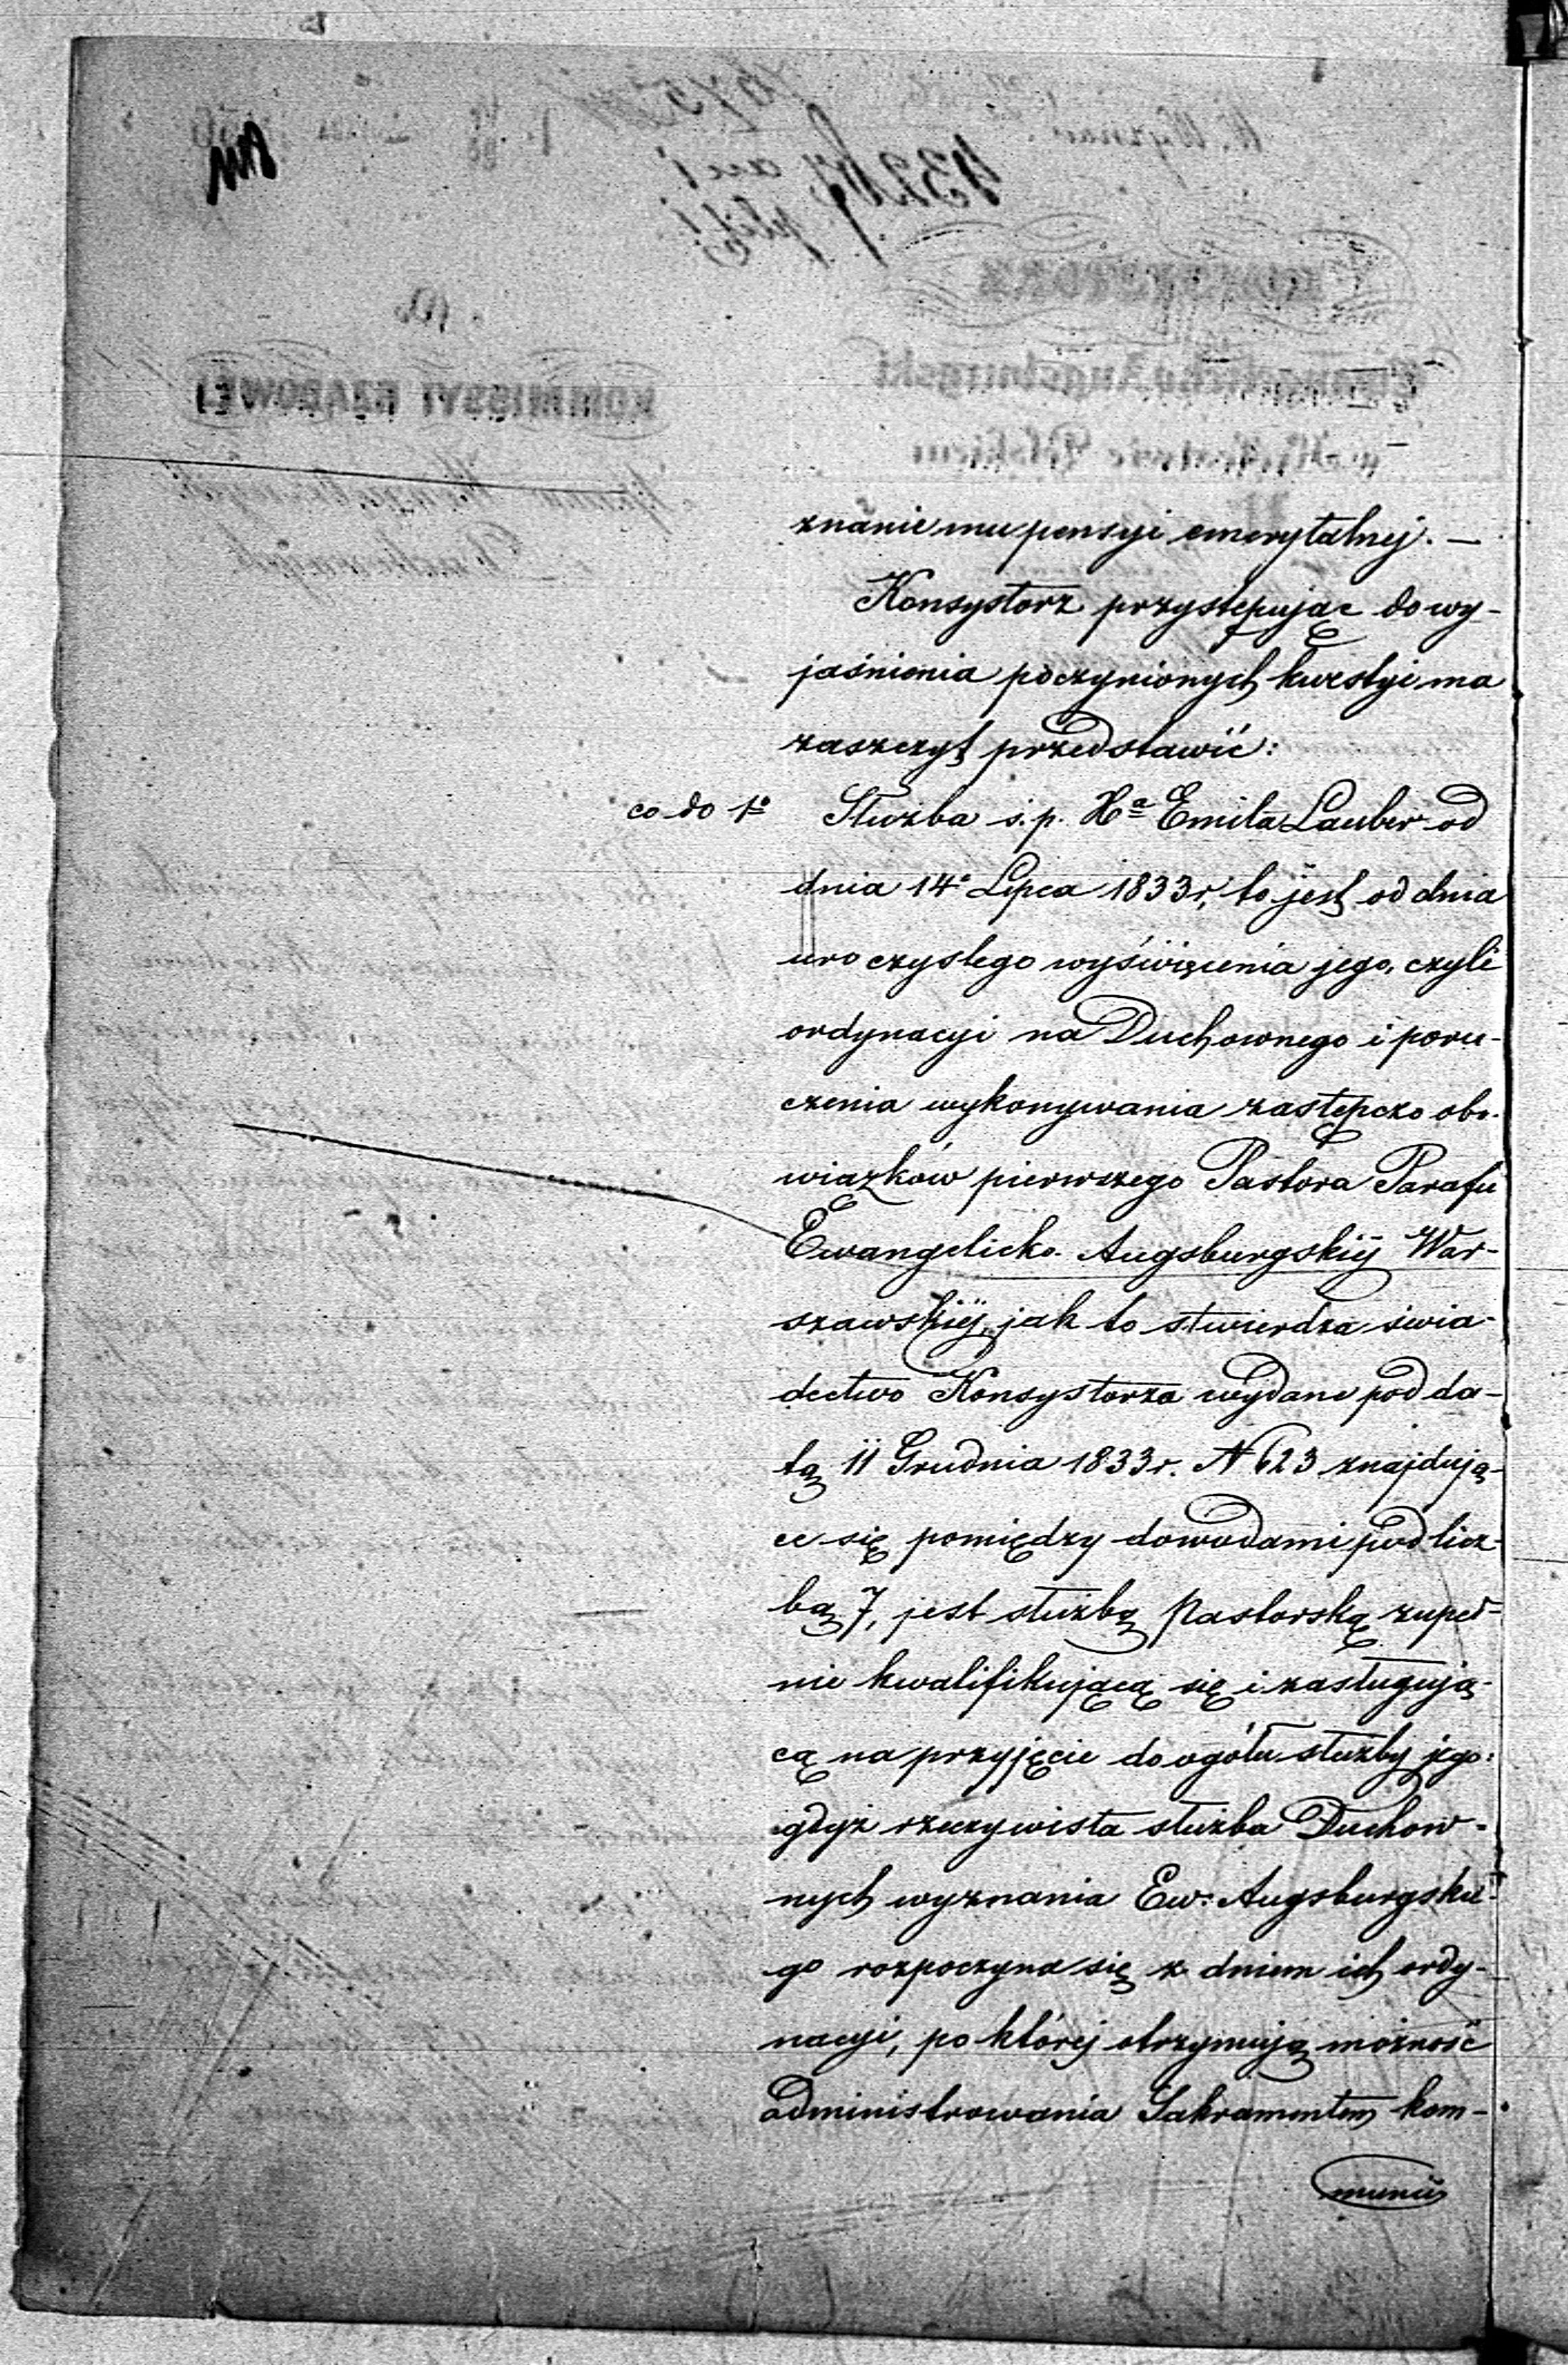 znanie mu pensyi emerytalnej. —
Konsystorz przystępując do wy-
jaśnienia poczynionych kwestyi ma
zaszczyt przedstawić:
co do 1º Służba ś.p. Xª Emila Lauber od
dnia 14º Lipca 1833 r, to jest od dnia
uroczystego wyświęcenia jego, czyli
ordynacyi na Duchownego i poru-
czenia wykonywania zastępczo obo-
wiązków pierwszego Pastora Parafii
Ewangelicko-Augsburgskiéj War-
szawskiéj, jak to stwierdza świa-
dectwo Konsystorza wydane pod da-
tą 11 Grudnia 1833 r. N 623 znajdują-
ce się pomiędzy dowodami pod licz-
bą 7, jest służbą Pastorską zupeł-
nie kwalifikującą się i zasługują-
cą na przyjęcie do ogółu służby jego:
gdyż rzeczywista służba Duchow-
nych wyznania Ew: Augsburgskie-
go rozpoczyna się z dniem ich ordy-
nacyi, po której otrzymują możność
administrowania Sakramentem kom-
munii